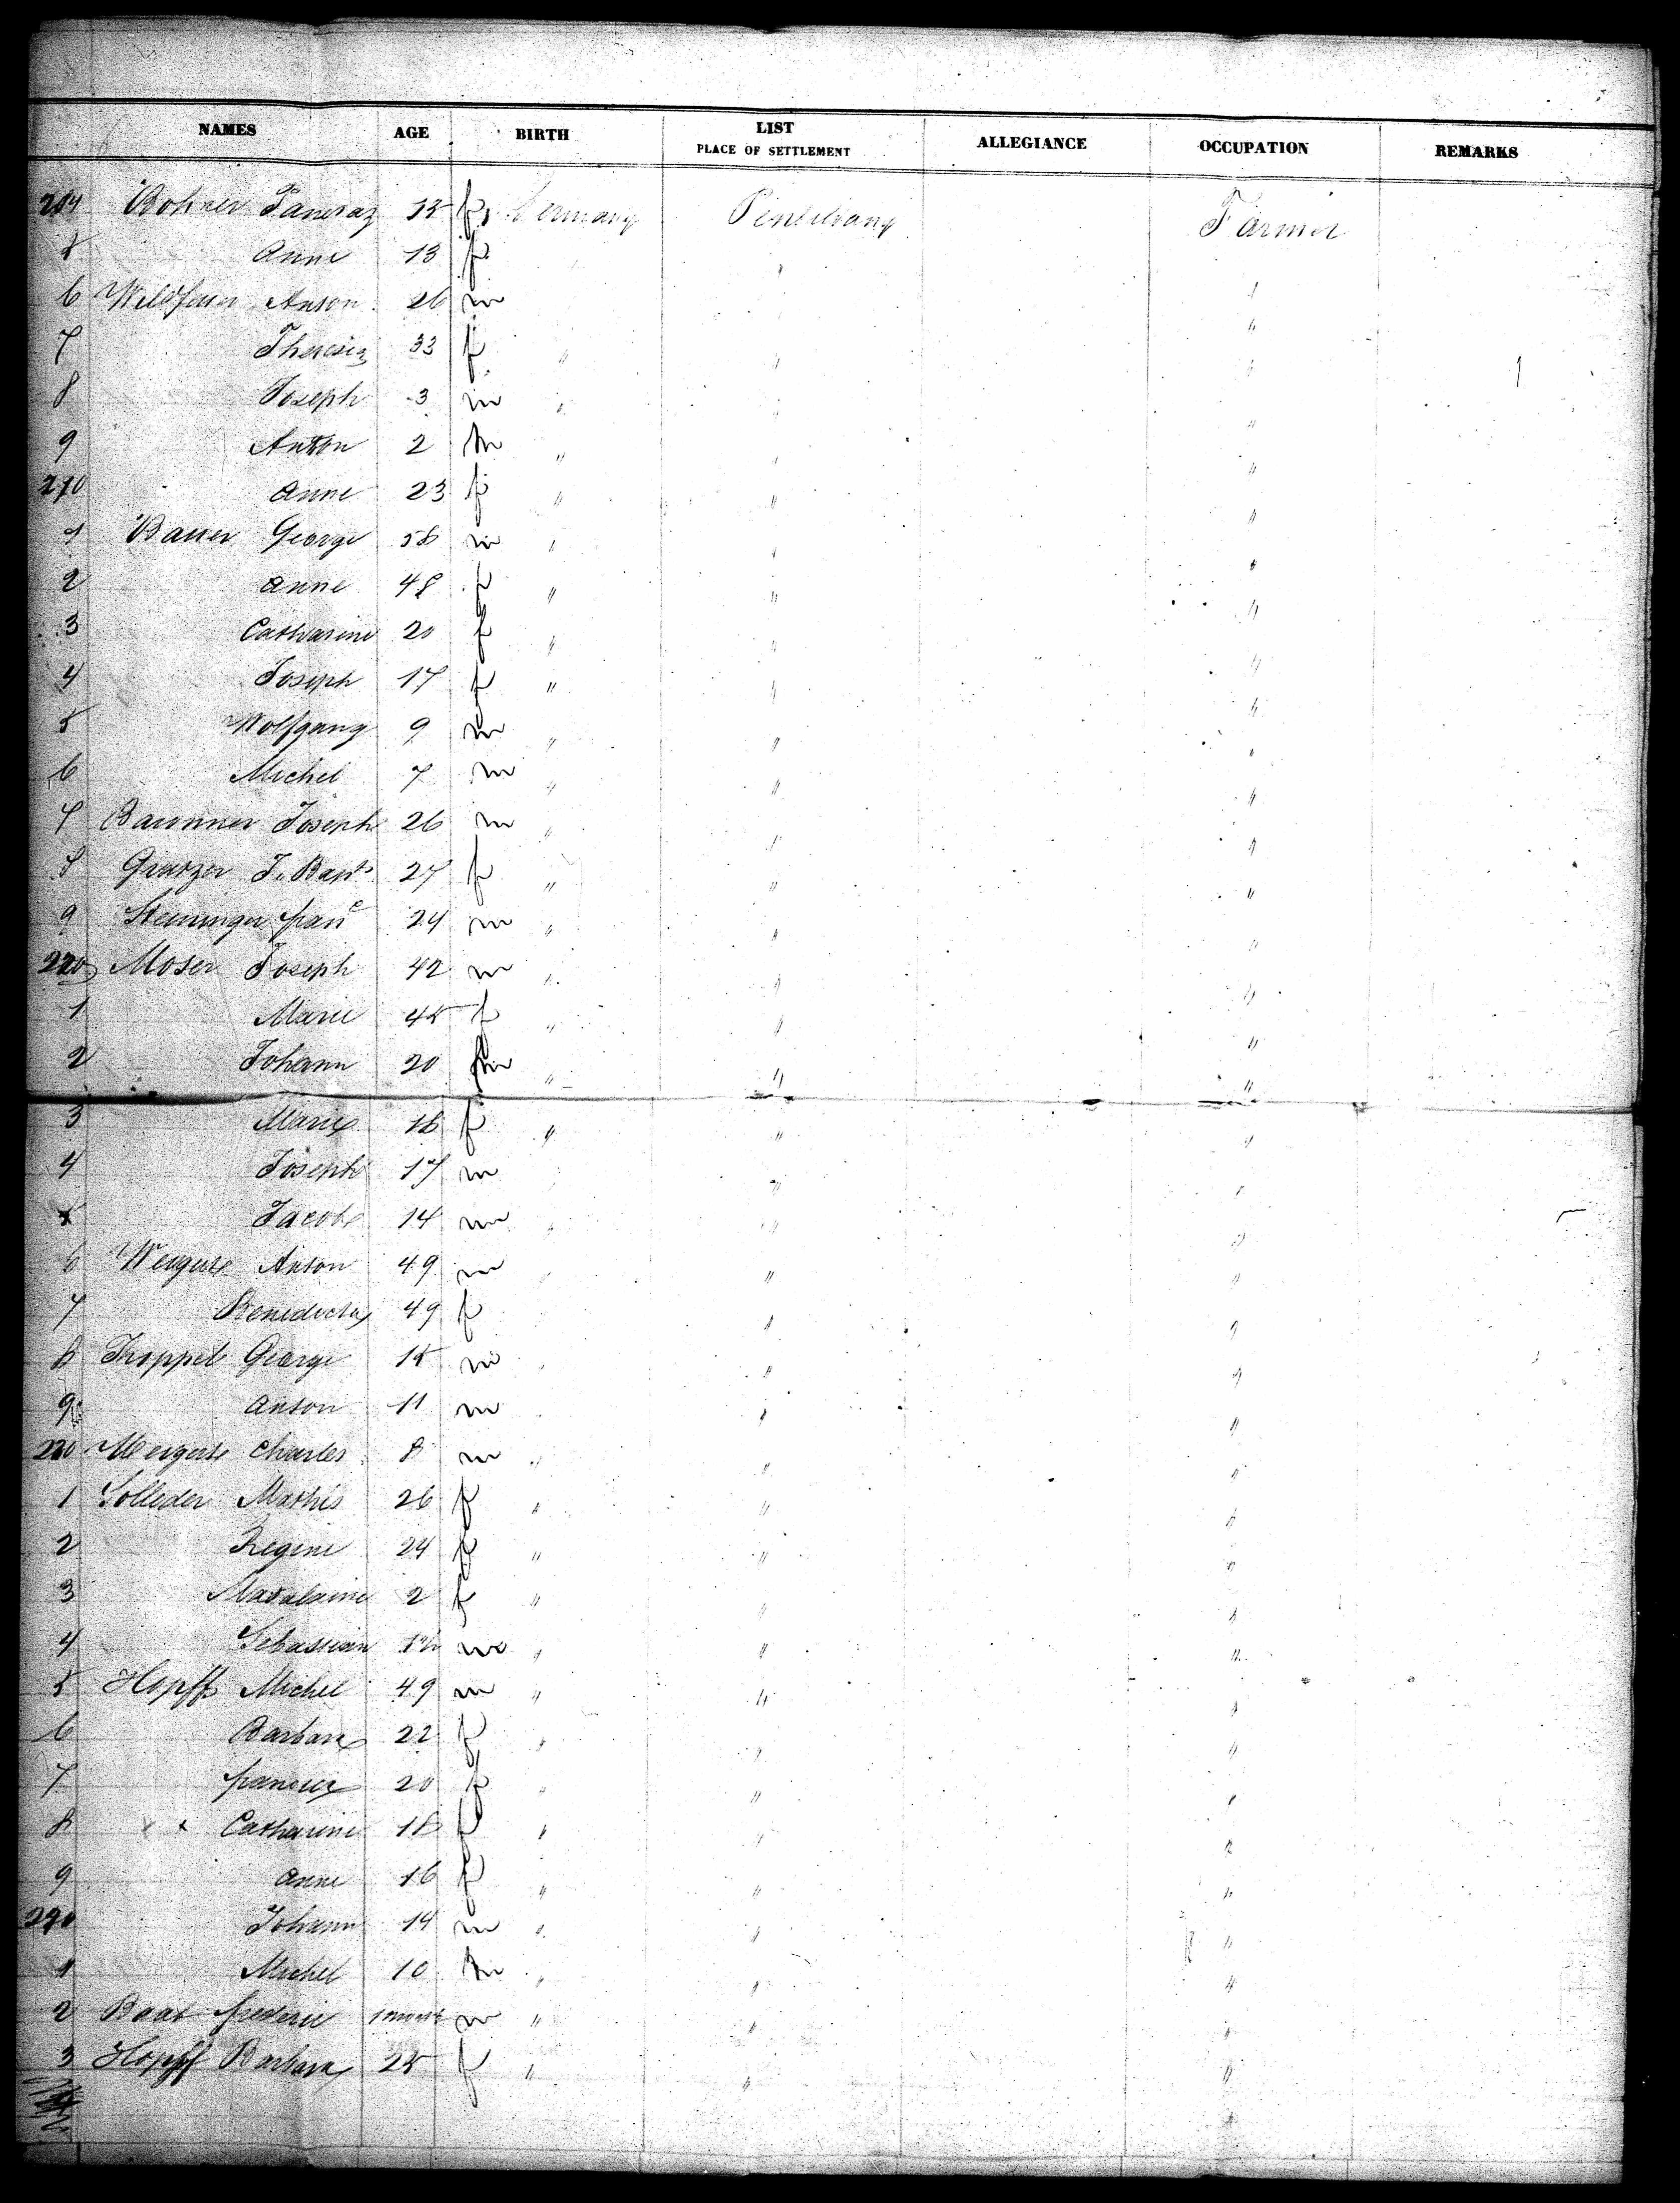 NAMES AGE BIRTH LIST PLACE OF SETTLEMENT ALLEGIANCE OCCUPATION REMARKS
204 Rohner 15 f Germany Farmer
5 Anne 13 f
6 Anton 26 m "
7 Theresia 33 f " " "
8 Joseph 3 m " " "
9 Anton 2 m " " "
210 Anne 23 f " " "
1 Bauer George 58 m " " "
2 Anne 48 f " " "
3 Catharine 20 f " " "
4 Joseph 17 f " " "
5 Wolfgang 9 m " " "
6 Michel 7 m " " "
7 Joseph 26 m " " "
8 J. Bapt. 27 f " " "
9 24 m " " "
220 Moser Joseph 42 m " " "
1 Marie 45 f " " "
2 Johann 20 m " " "
3 Marie 18 f " " "
4 Joseph 17 m " "
5 Jacob 14 m " "
6 Weigert Anton 49 m " "
7 Benedicta 49 f " "
8 George 15 m " "
9 Anton 11 m " "
230 Charles 8 m " " "
1 Solleder Mathis 26 f " " "
2 Regine 24 f " " "
3 Madalaine 2 f " " "
4 Sebastian m " " "
5 Hopff Michel 49 m " " "
6 Barbara 22 f " " "
7 20 f " " "
8 Catharine 18 f " " "
9 Anne 16 f " " "
240 Johann 14 m " " "
1 Michel 10 m " " "
2 frederic 1 month m " " "
3 Hopff Barbara 25 f " " "